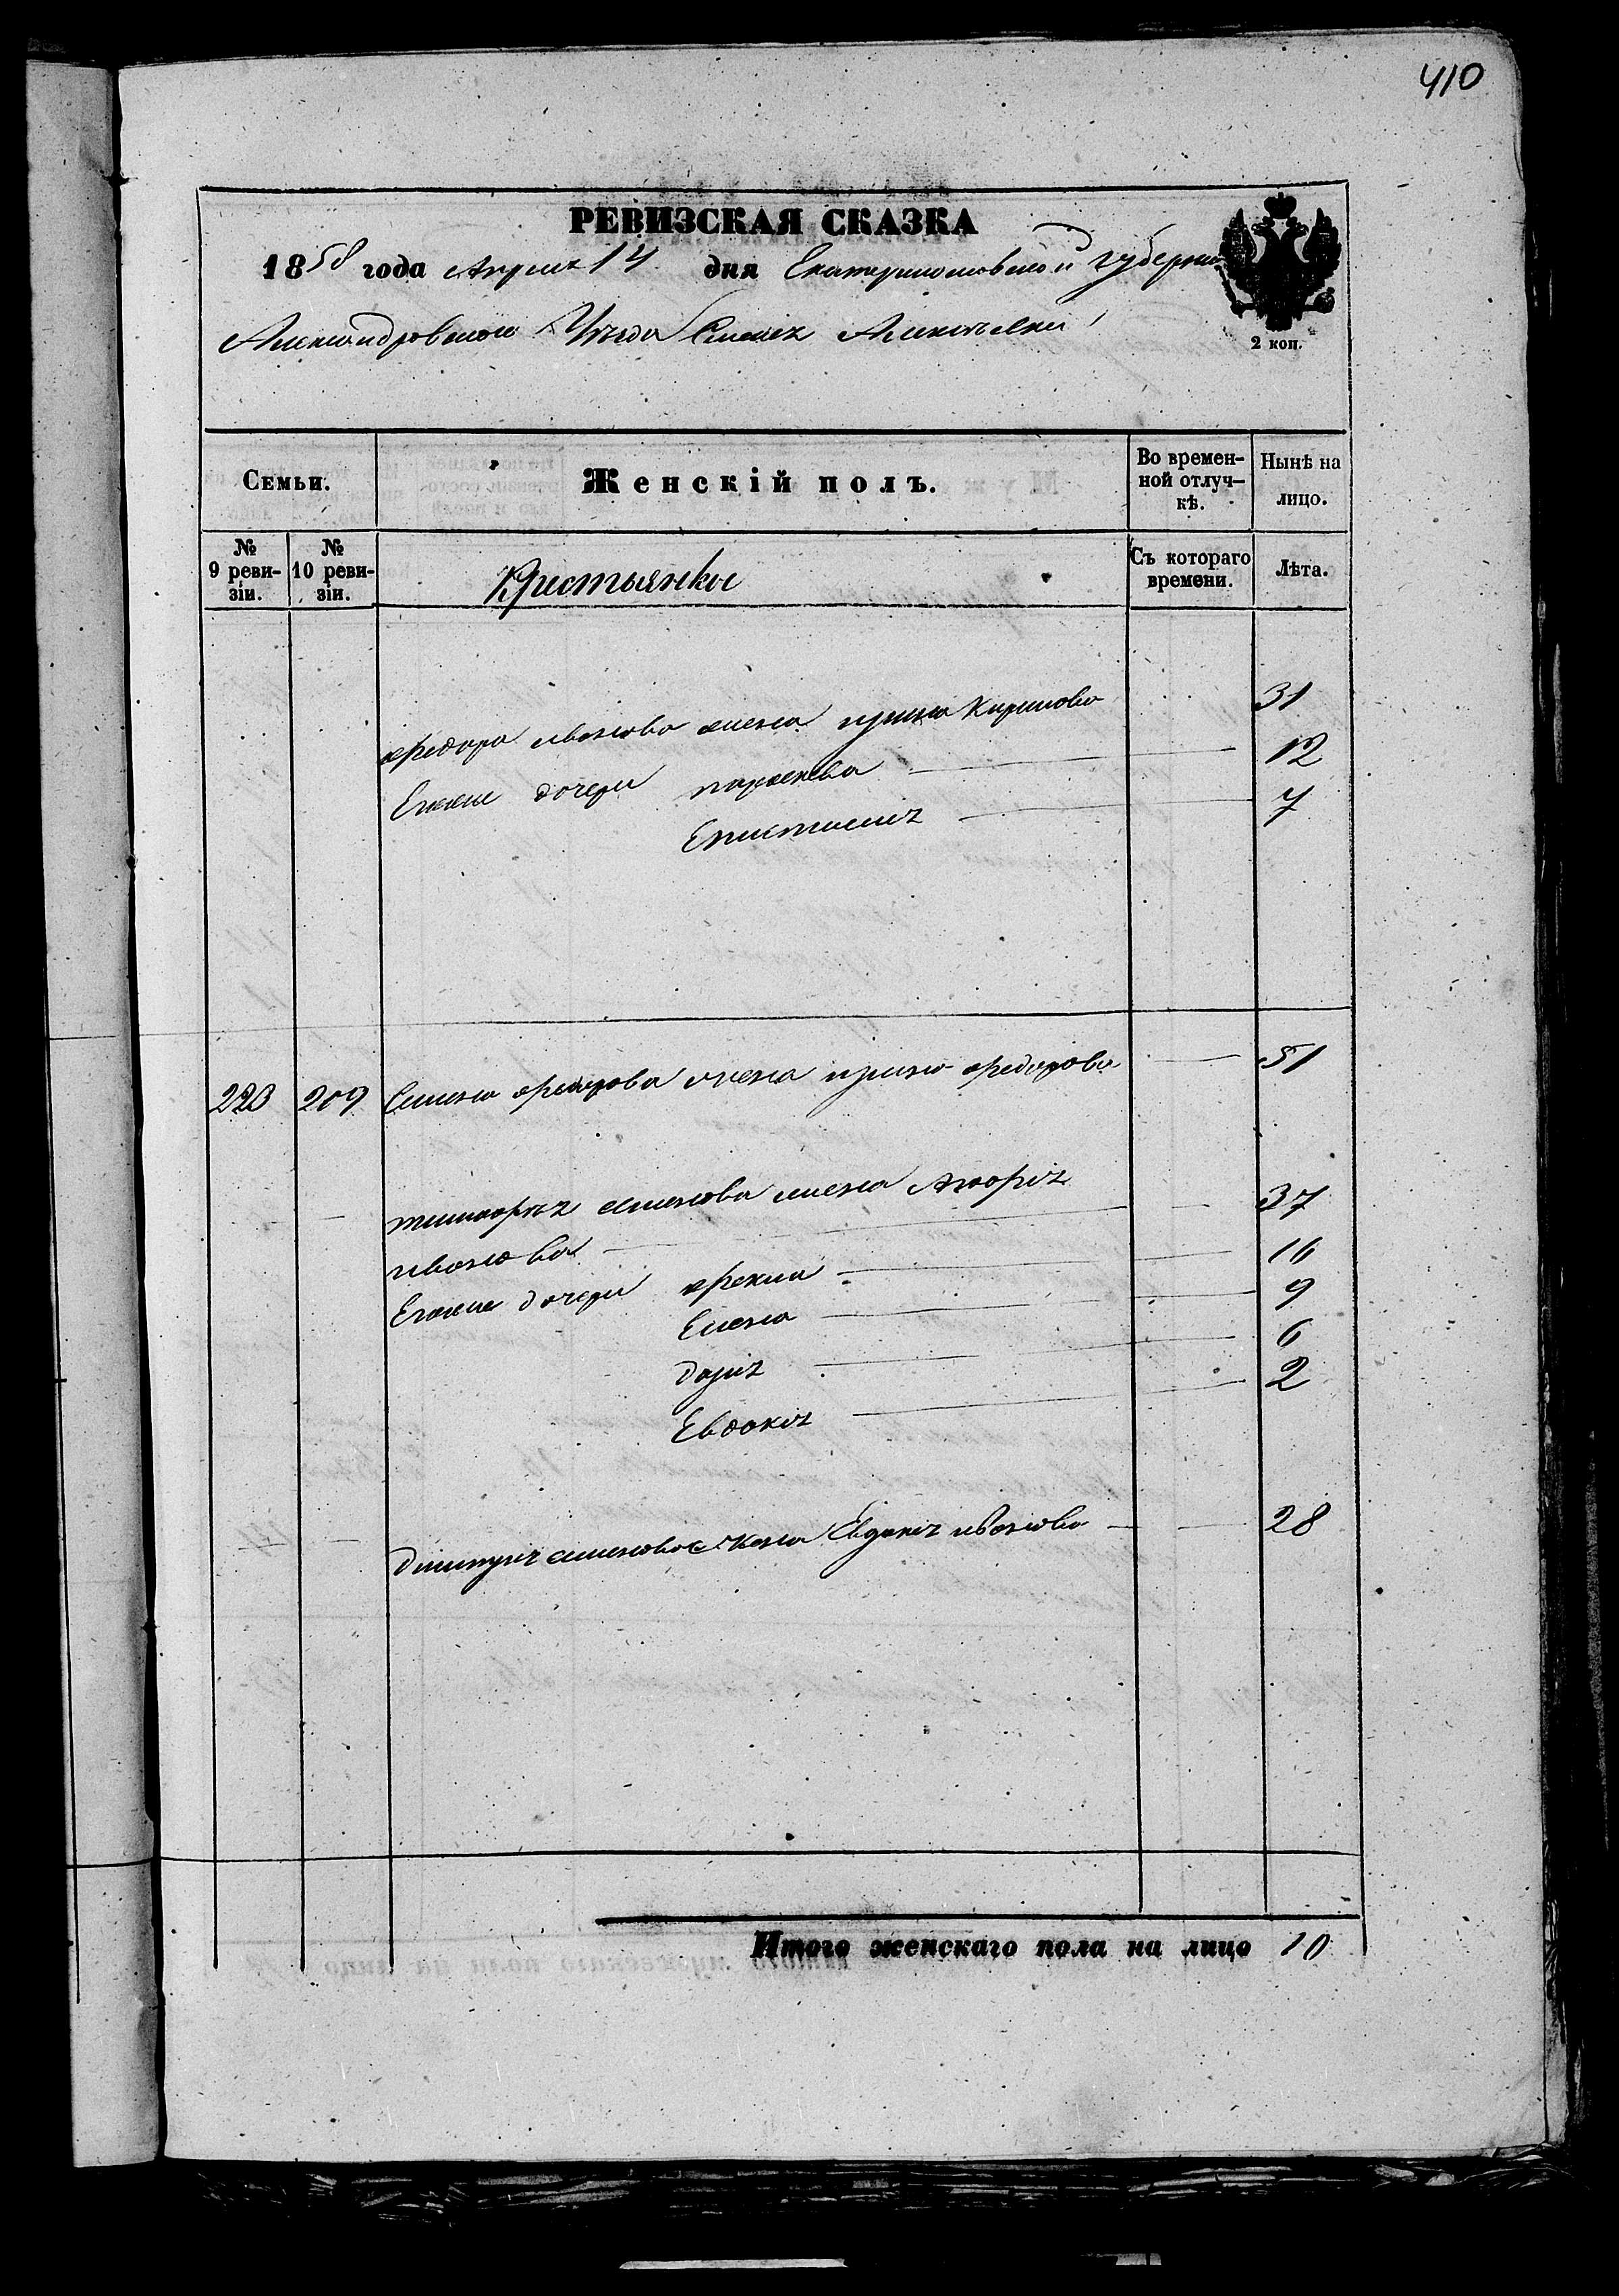 410
РЕВИЗСКАЯ СКАЗКА
1858 года Апреля 14 дня Екатеринославской губернии
Александровского Уезда Селенія Алексѣевки
2 коп.
Семьи. Женскій полъ. Во времен-ной отлуч-кѣ. Нынѣ на лицо.
№ 9 реви-зіи. № 10 реви-зіи. Крестьянки Съ котораго времени. Лѣта.
федора иванова жена ирина Кирилова 31
Егоже дочери параскева 12
Епистимия 7
223 209 Семена федорова жена ирина федорова 51
тимофея семенова жена
иванова 37
Егоже дочери фекла 16
Елена 9
дария 6
Евдокия 2
димитрия семенова жена Евдокия иванова 28
Итого женскаго пола на лицо 10